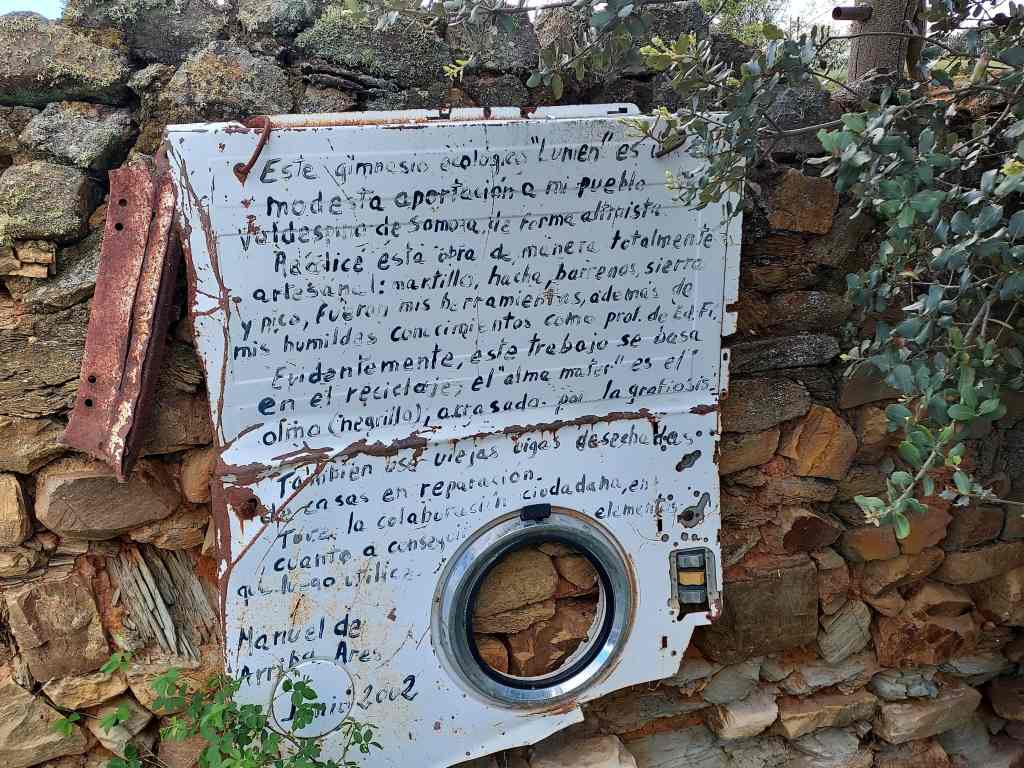 Este gimnasio ecológico "Lumen" es u
modesta aportación a mi pueblo
Valdespino de Somoza, de forma altruista.
Realicé esta obra de manera totalmente
artesanal: martillo, hacha, barrenos, sierra
y pico, fueron mis herramientas, además de
mis humildes conocimientos como prof. de Ed. Fi.
Evidentemente, este trabajo se basa
en el reciclaje; el "alma mater" es el
olmo (negrillo), arrasado por la grafiosis.
También usé viejas vigas desechadas
de casas en reparación.
Tuve la colaboración ciudadana, en
cuanto a consegui elementos
que luego utilicé.
Manuel de
Arriba Ares
Junio 2002